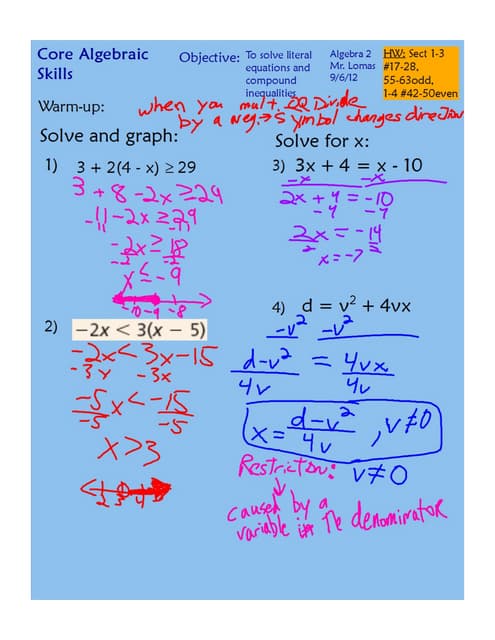 Core Algebraic
Skills
Objective:
To solve literal
equations and
compound
inequalities
Algebra 2
Mr. Lomas
9/6/12
HW: Sect 1-3
#17-28,
55-63odd,
1-4 #42-50even
Warm-up:
when you mult. OR Divide
by a neg. → symbol changes direction
Solve and graph:
1) 3 + 2(4 - x) ≥ 29
3 + 8 - 2x ≥ 29
-11 - 2x ≥ 29
-11 -11
-2x ≥ 18
-2 -2
x ≤ -9
-10 -9 -8
2) −2x < 3(x − 5)
-2x < 3x - 15
-3x -3x
-5x < -15
-5 -5
x > 3
2 3 4
Solve for x:
3) 3x + 4 = x - 10
-x -x
2x + 4 = -10
-4 -4
2x = -14
2 2
x = -7
4) d = v² + 4vx
-v² -v²
d-v² = 4vx
4v 4v
x = d-v² , v≠0
4v
Restriction: v≠0
↓
caused by a
variable in the denominator